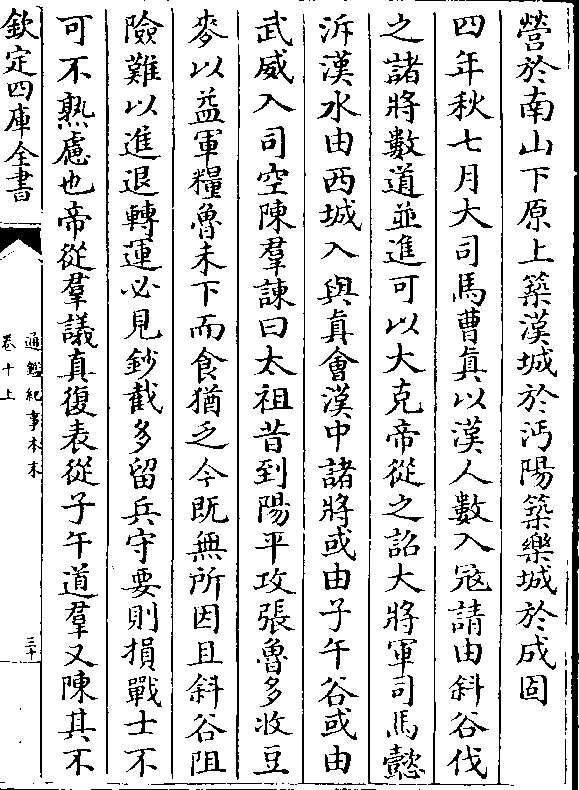 營於南山下原上築漢城於沔陽築樂城於成固
四年秋七月大司馬曹真以漢人數入冦請由斜谷伐
之諸將數道並進可以大克帝從之詔大將軍司馬懿
泝漢水由西城入與真會漢中諸將或由子午谷或由
武威入司空陳羣諫曰太祖昔到陽平攻張魯多收豆
麥以益軍糧魯未下而食猶乏今既無所因且斜谷阻
險難以進退轉運必見鈔截多留兵守要則損戰士不
可不熟慮也帝從羣議真復表從子午道羣又陳其不
欽定四庫全書
通鑑紀事本末
卷十上
三十